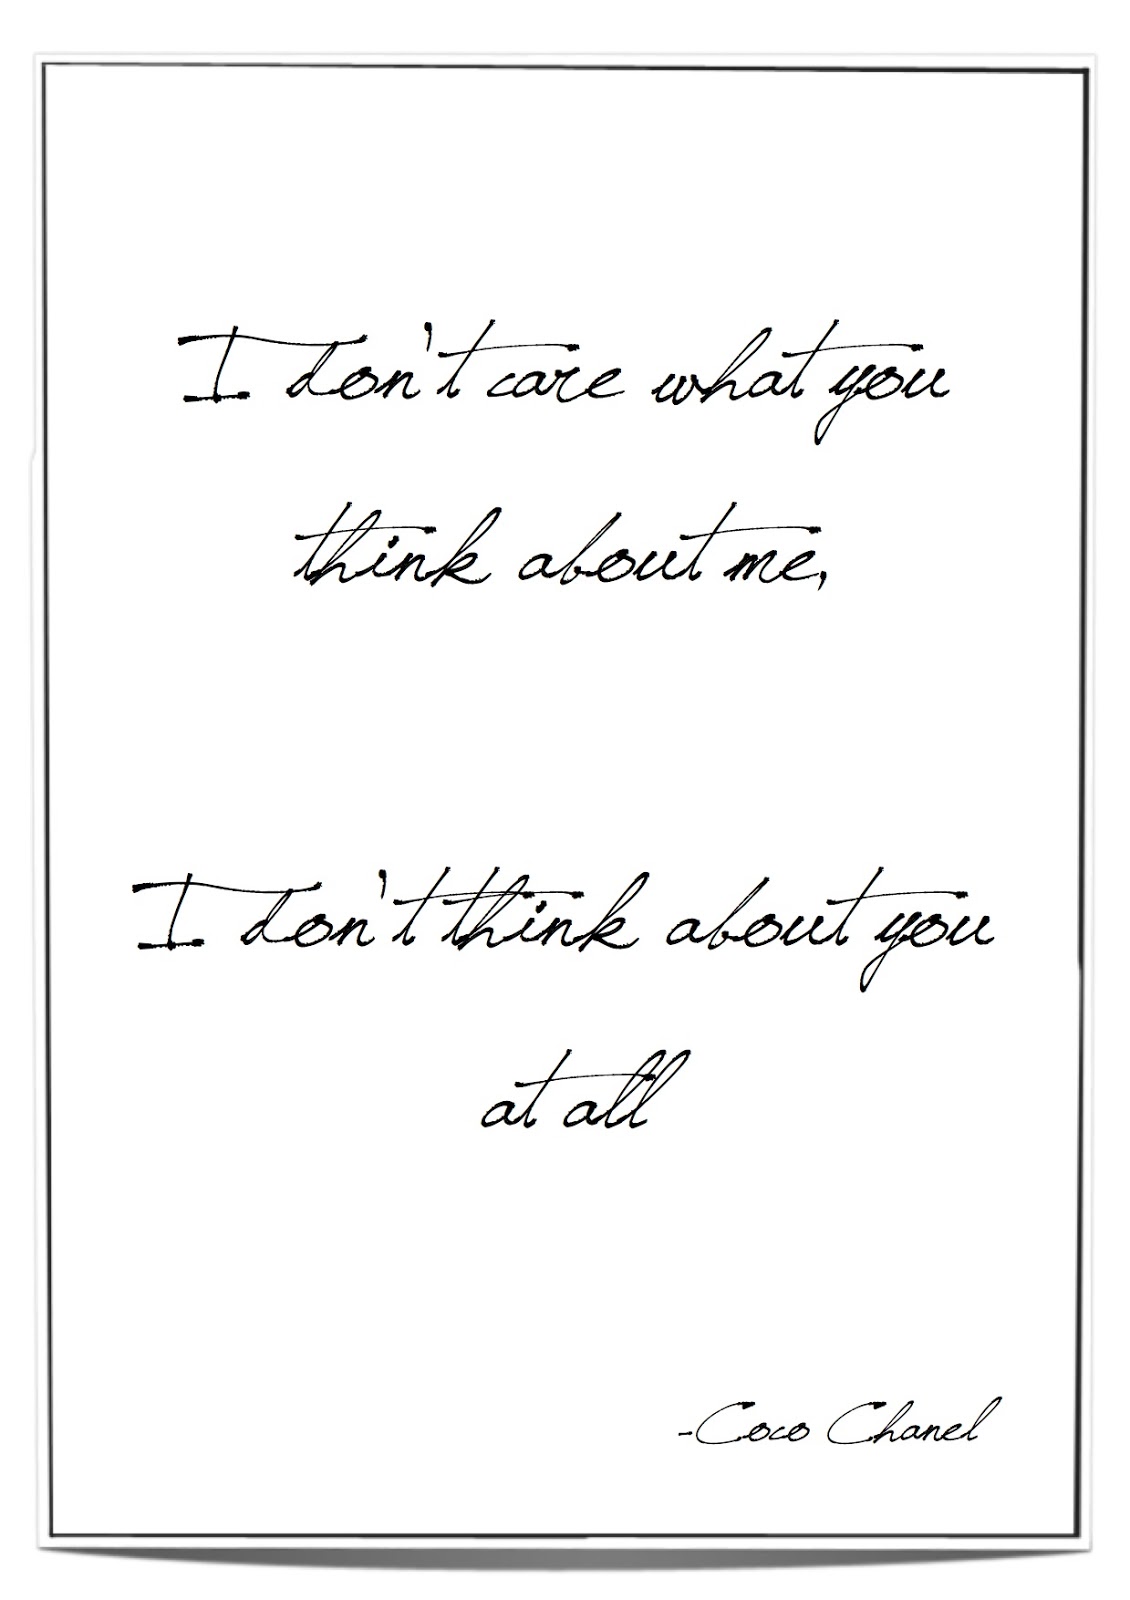 I don't care what you
think about me,
I don't think about you
at all
-Coco Chanel